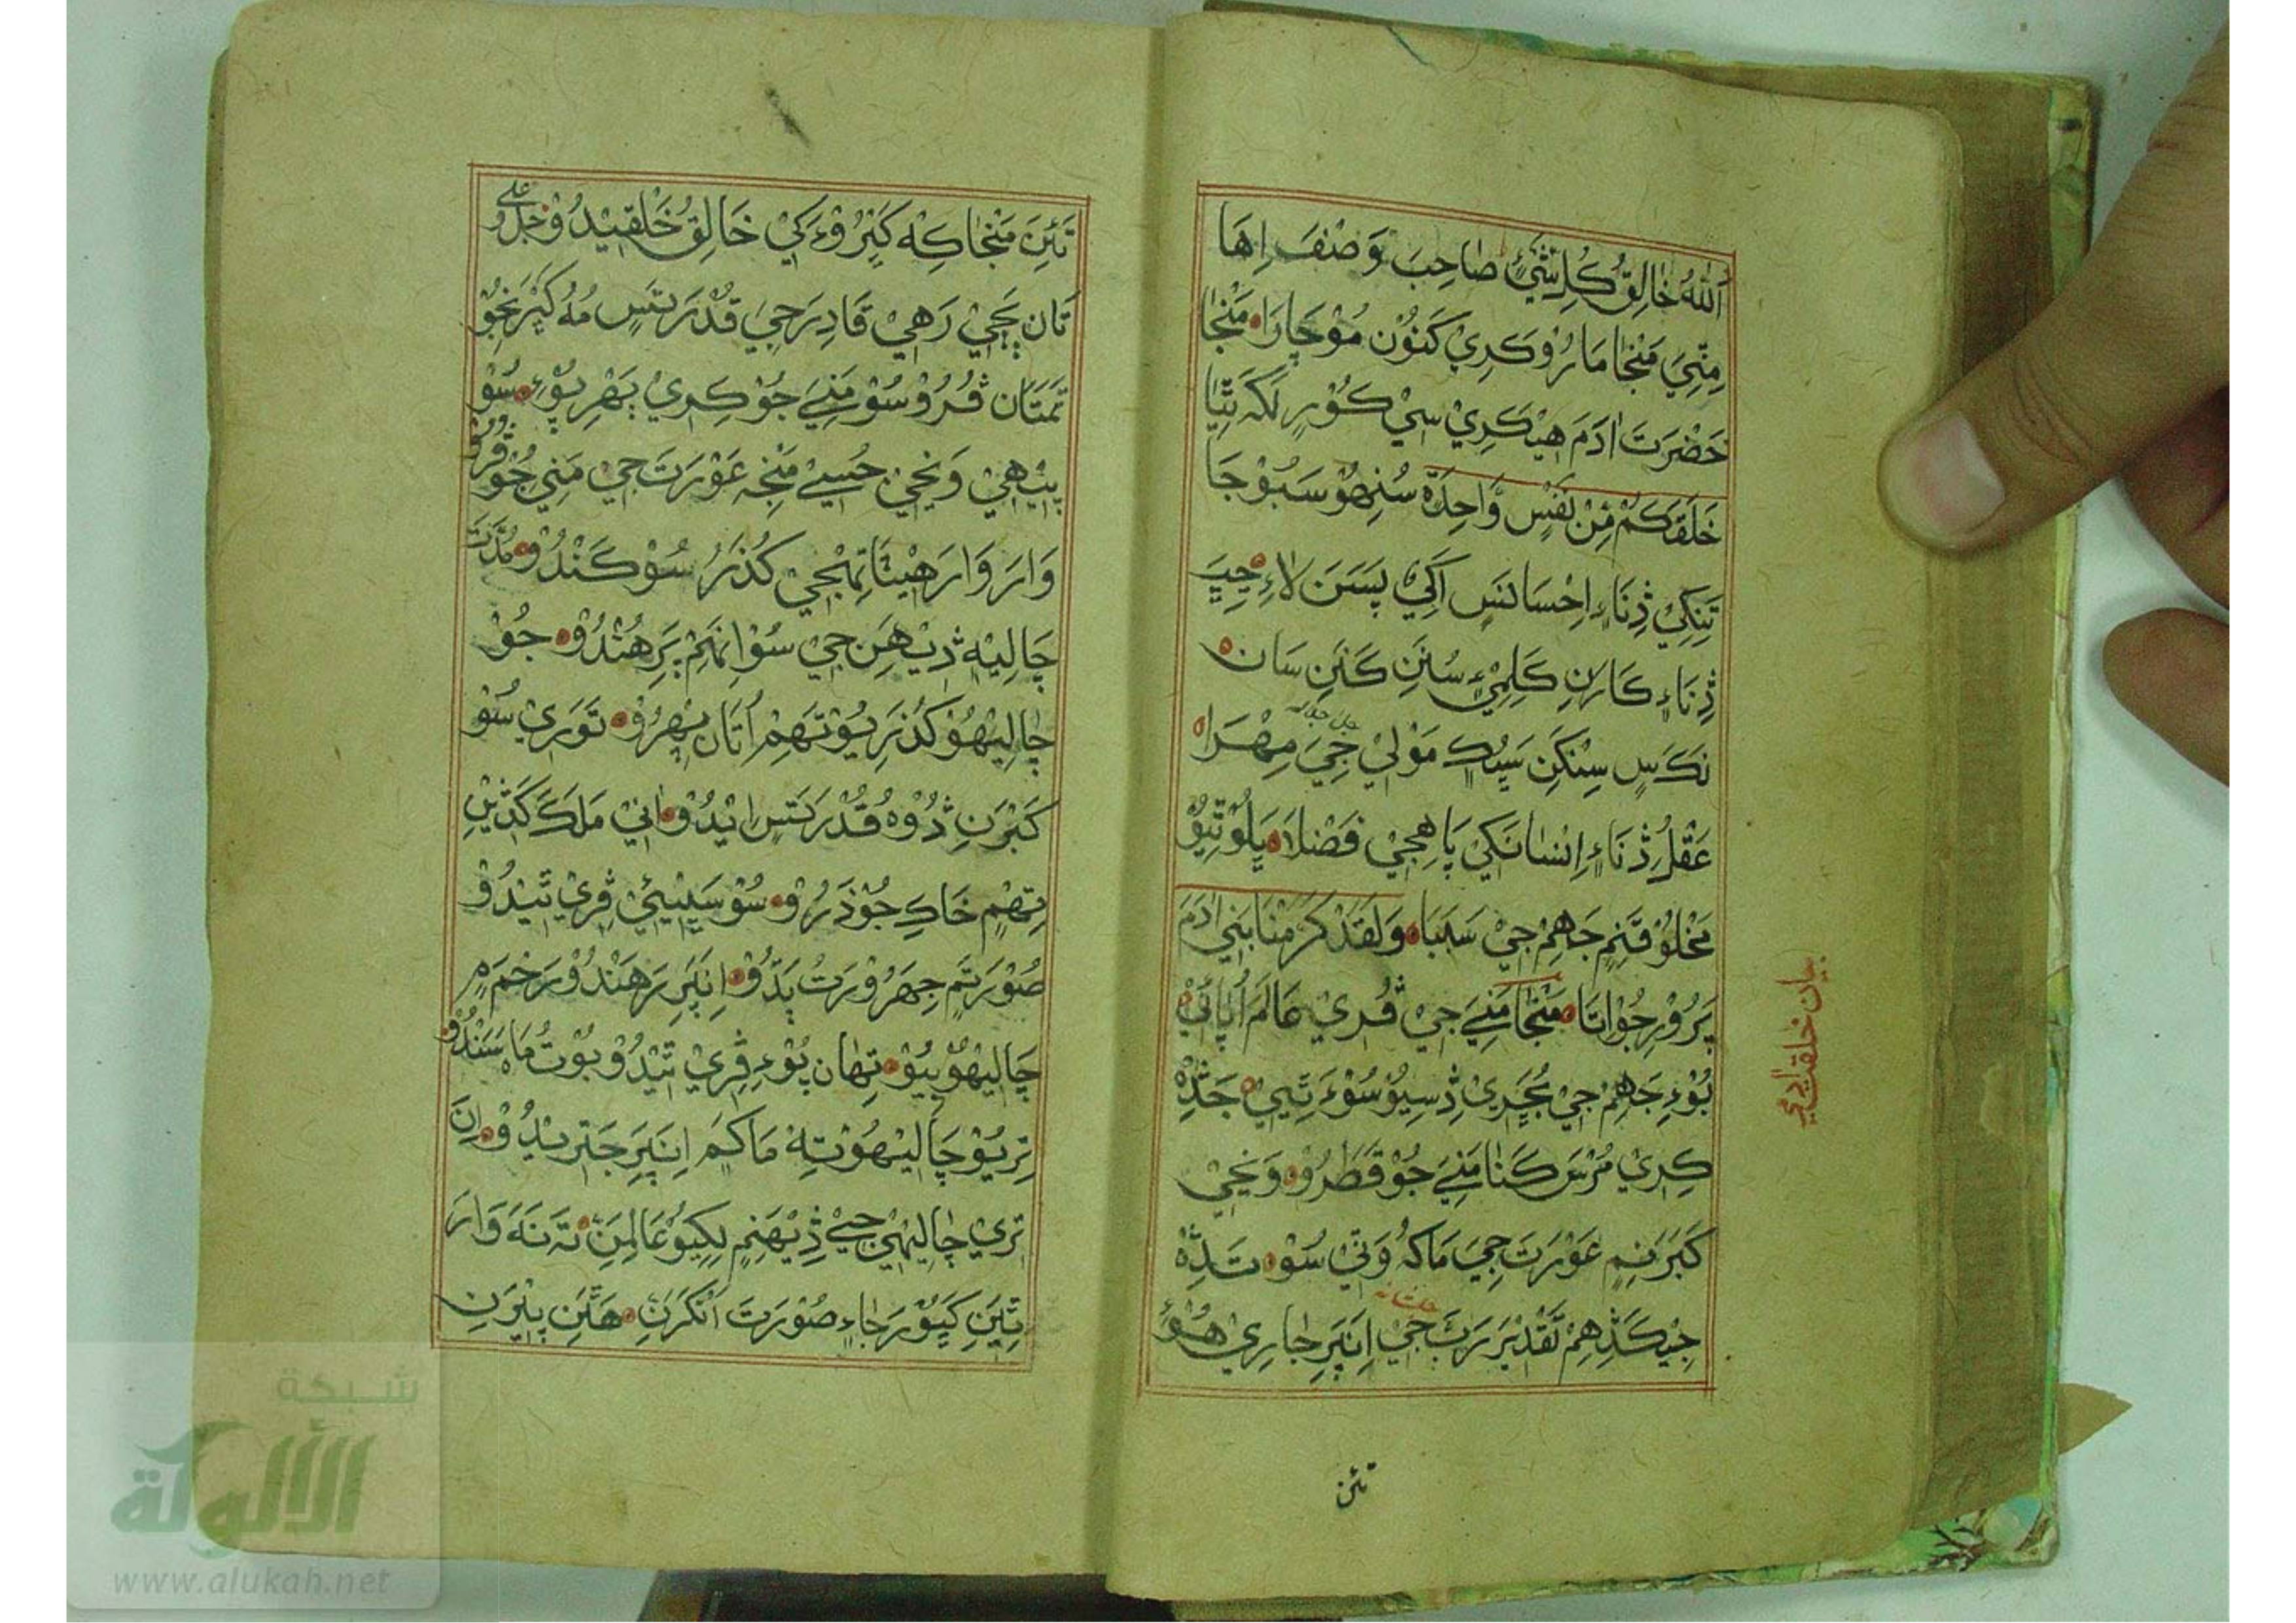 اَللّٰهُ خَالِقُ كُلِّ شَيْءٍ صَاحِبَ وَصْفَ اِهَا
مِٽِيَ مَنْجَا مَارُوْ كَرِيْ كَنُوْن مُوْچَارَا مَنْجَا
حَضْرَتَ اٰدَمَ هيْكَرِيْ سِيْ كُوْرِ لَكَ ٿِيَا
خَلَقَكُمْ مِنْ نَفْسٍ وَّاحِدَةٍ سُنِهُوْ سَبُوْجَا
تَنِكِيْ ڎِنَاءِ اِحْسَانسَ اَكِيْ پَسَنَ لَاءِ جِيَ
ڎِنَاءِ كَارَنِ كَلِمِيْ سُنَنِ كَنَنِ سَان
نَكَسِ سِنْكَنَ سَيِڪَ مَوْلٰيْ جِيَ مِهْرَا
عَقْلُ ڎِنَاءِ اِنْسَانَكِيْ پَاهِجِيْ فَضْلَا پَلُوْ ٿِيُوْ
مَخْلُوْقَنِمِ جَاهِمْ جِيْ سَبَبَا وَلَقَدْ كَرَّمْنَا بَنِيْ اٰدَمَ
پَرُوْرِ جُوْاتَا مَنْجَا مَنِيَ جِيْ ڦُرِيْ عَالَمَ اُپَائِيْ
بُوْءِ جَهِمْ جِيْ عُجَرِيْ ڎِسِيُوْ سُوْءَ تَيِيْ جَڎِهْ
كِرِيْ مُرْسَ كَنَا مَنِيَ جُوْ قَطْرُوْ وَنجِيْ
كَبَرَانِمِ عَوْرَتَ جِيَ مَاكُه وَٽِيْ سُوْ تَڎِهْ
جِيْكَڎِهِمْ تَقْدِيْرَ رَبَّ جِيْ اِنَپَرِ جَارِيْ هُوْءِ
تئن
بيان خلقت ادمي
تَئِنَ مَنْجَاكِه كَبْرُوْءَ كِيْ خَالِقُ خَلْقِيْدُوْ
تَان پَچِيْ رَهِيْ قَادِرَ جِيَ قُدْرَتَسِ مُه كَبْرَ نجُوْ
تَمَتَان ڦُرُوْ سُوْ مَنِيَ جُوْ كِرِيْ پَهْرِ پُوْءِ سُوْ
پيْٽِهِيْ وَنجِيْ جُسِيْ مَنْجِه عَوْرَتَ جِيْ مَنِيْ جُوْ
وَارَ وَارَ هيْٺَا تِهْجِيْ كُذَرُ سُوْ كَنْدُوْ مُدَّتَ
چَالِيْه ڎِيْهَنِ جِيْ سُوْ اِنَهَمْ پَرِ هُنْدُوْ جُوْ
چَالِيْهُوْ كُذَرِيُوْ تَهِمْ اُتَان پهْرُوْ تَوَرِيْ سُوْ
كَبْرَنِ ڎُوْهُ قُدْرَتَسِ اِيْدُوْ اٰنِيْ مَلَكَ كَڎِيْنِ
تِهْمِ خَاكِ جُوْذَرُوْ سُوْ سَيْنِيْئِيْ ڦِرِيْ ٿيْدُوْ
صُوْرَتَمِ جِهَرُوْ رَتُ بَڌُوْ اِنَپَرِ رَهَنْدُوْ رَحْمَمِ
چَالِيْهُوْ بِيُوْ تِهَان پُوْءِ ڦِرِيْ ٿِيْدُوْ بُوْتُ مَاسَنْدُوْ
تِرِيُوْ چَالِيْهُوْ تِهْ مَاكَمَ اِنَپَرِ جَتْرِيْدُوْ اِنَ
تِرِيْ چَالِيْهِيْ جِيْ ڎِيْهَنِمِ لِكِيُوْ عَالِمَنِ تَه نَه وَارَ
تِيْنِ كِيُوْرَجَاءِ صُوْرَتَ اَنْكَرَنِ هَٿَنِ پيْرَنِ
شبكة
الألوكة
www.alukah.net